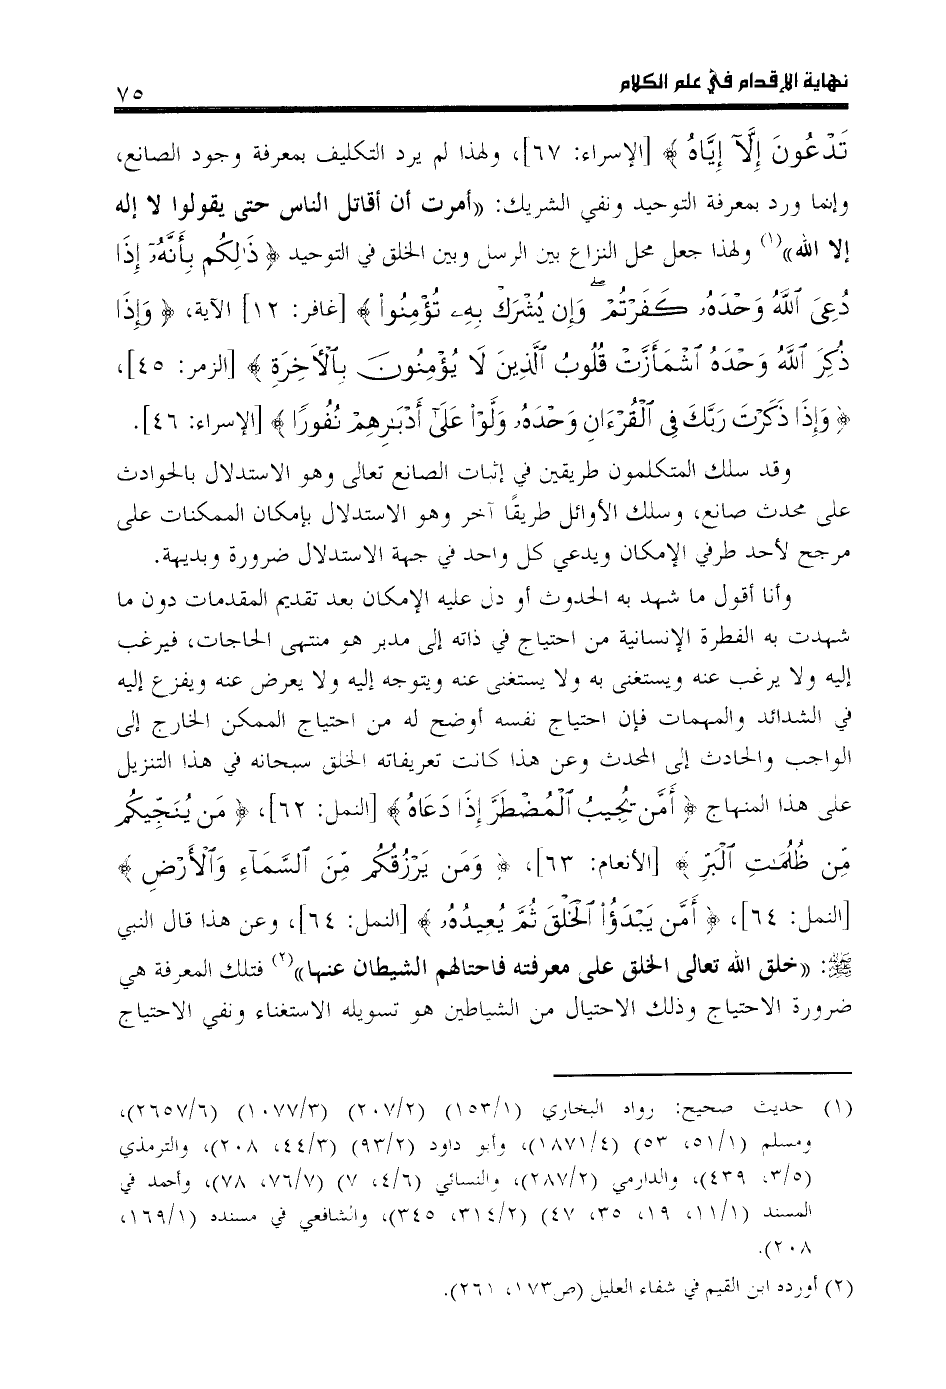 نهاية الإقدام في علم الكلام
٧٥
تَدْعُونَ إِلَّآ إِيَّاهُ ﴾ [الإسراء: ٦٧]، ولهذا لم يرد التكليف بمعرفة وجود الصانع،
وإنما ورد بمعرفة التوحيد ونفي الشريك: «أمرت أن أقاتل الناس حتى يقولوا لا إله
إلا الله»(١) ولهذا جعل محل النزاع بين الرسل وبين الخلق في التوحيد ﴿ ذَٰلِكُم بِأَنَّهُۥٓ إِذَا
دُعِىَ ٱللَّهُ وَحْدَهُۥ كَفَرْتُمْ ۖ وَإِن يُشْرَكْ بِهِۦ تُؤْمِنُوا۟ ﴾ [غافر: ١٢] الآية، ﴿ وَإِذَا
ذُكِرَ ٱللَّهُ وَحْدَهُ ٱشْمَأَزَّتْ قُلُوبُ ٱلَّذِينَ لَا يُؤْمِنُونَ بِٱلْأَخِرَةِ ﴾ [الزمر: ٤٥]،
﴿ وَإِذَا ذَكَرْتَ رَبَّكَ فِى ٱلْقُرْءَانِ وَحْدَهُۥ وَلَّوْا۟ عَلَىٰٓ أَدْبَٰرِهِمْ نُفُورًا ﴾ [الإسراء: ٤٦].
وقد سلك المتكلمون طريقين في إثبات الصانع تعالى وهو الاستدلال بالحوادث
على محدث صانع، وسلك الأوائل طريقًا آخر وهو الاستدلال بإمكان الممكنات على
مرجح لأحد طرفي الإمكان ويدعي كل واحد في جهة الاستدلال ضرورة وبديهة.
وأنا أقول ما شهد به الحدوث أو دل عليه الإمكان بعد تقديم المقدمات دون ما
شهدت به الفطرة الإنسانية من احتياج في ذاته إلى مدبر هو منتهى الحاجات، فيرغب
إليه ولا يرغب عنه ويستغنى به ولا يستغنى عنه ويتوجه إليه ولا يعرض عنه ويفزع إليه
في الشدائد والمهمات فإن احتياج نفسه أوضح له من احتياج الممكن الخارج إلى
الواجب والحادث إلى المحدث وعن هذا كانت تعريفاته الخلق سبحانه في هذا التنزيل
على هذا المنهاج ﴿ أَمَّن يُجِيبُ ٱلْمُضْطَرَّ إِذَا دَعَاهُ ﴾ [النمل: ٦٢]، ﴿ مَن يُنَجِّيكُم
مِّن ظُلُمَٰتِ ٱلْبَرِّ ﴾ [الأنعام: ٦٣]، ﴿ وَمَن يَرْزُقُكُم مِّنَ ٱلسَّمَآءِ وَٱلْأَرْضِ ﴾
[النمل: ٦٤]، ﴿ أَمَّن يَبْدَؤُا۟ ٱلْخَلْقَ ثُمَّ يُعِيدُهُۥ ﴾ [النمل: ٦٤]، وعن هذا قال النبي
ﷺ: «خلق الله تعالى الخلق على معرفته فاحتالهم الشيطان عنها»(٢) فتلك المعرفة هي
ضرورة الاحتياج وذلك الاحتيال من الشياطين هو تسويله الاستغناء ونفي الاحتياج
(١) حديث صحيح: رواد البخاري (١/١٥٣) (٢/٢٠٧) (٣/١٠٧٧) (٦/٢٦٥٧)،
ومسلم (١/٥١، ٥٣) (٤/١٨٧١)، وأبو داود (٢/٩٣) (٣/٤٤، ٢٠٨)، والترمذي
(٥/٣، ٤٣٩)، والدارمي (٢/٢٨٧)، والنسائي (٦/٤، ٧) (٧/٧٦، ٧٨)، وأحمد في
المسند (١/١١، ١٩، ٣٥، ٤٧) (٢/٣١٤، ٣٤٥)، والشافعي في مسنده (١/١٦٩،
٢٠٨).
(٢) أورده ابن القيم في شفاء العليل (ص١٧٣، ٢٦١).